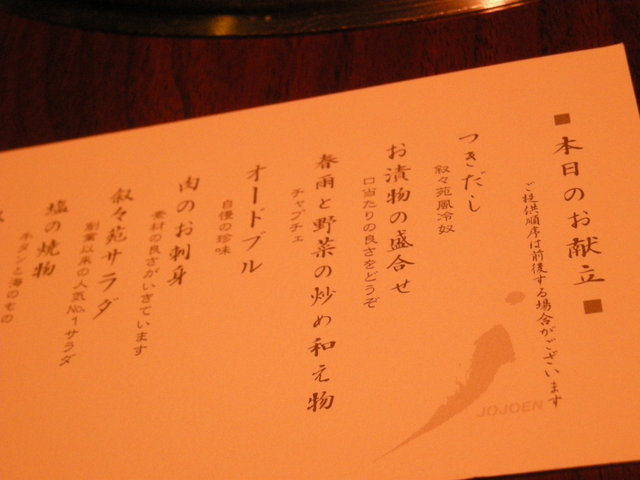 ■本日のお献立■
ご提供順序は前後する場合がございます
つきだし
叙々苑風冷奴
お漬物の盛合せ
口当たりの良さをどうぞ
春雨と野菜の炒め和え物
チャプチェ
オードブル
自慢の珍味
肉のお刺身
素材の良さがいきています
叙々苑サラダ
創業以来の人気No.1サラダ
塩の焼物
牛タンと海のもの
JOJOEN